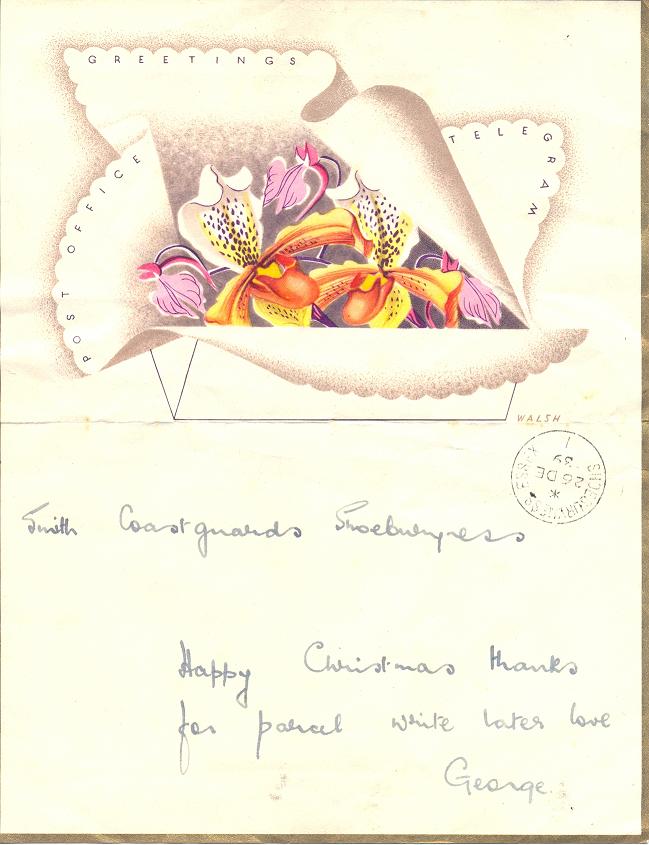 GREETINGS
POST OFFICE
TELEGRAM
WALSH
SHOEBURYNESS ESSEX
*
26 DE
39
1
Smith Coastguards Shoeburyness
Happy Christmas thanks
for parcel write later love
George